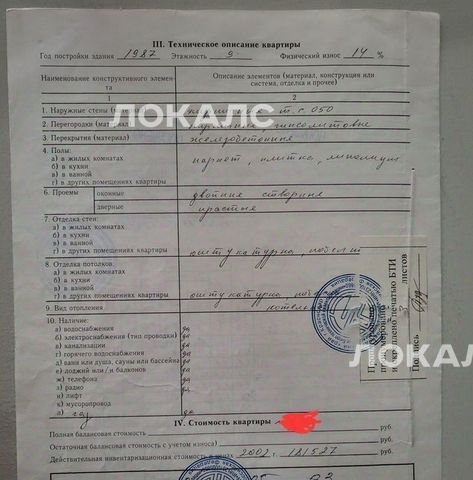 III. Техническое описание квартиры
Год постройки здания 1987 Этажность 9 Физический износ 14 %
Наименование конструктивного элемента
Описание элементов (материал, конструкция или система, отделка и прочее)
1 2
1. Наружные стены (материал) т. с. 050
ЛОКАЛС
2. Перегородки (материал) гипсолитовые
3. Перекрытия (материал) железобетонные
4. Полы:
а) в жилых комнатах
б) в кухни паркет, плитка, линолиум
в) в ванной
г) в других помещениях квартиры
6. Проемы оконные двойные створные
дверные простые
7. Отделка стен:
а) в жилых комнатах
б) в кухни
в) в ванной
г) в других помещениях квартиры оштукатурно, побелка
8. Отделка потолков.
а) в жилых комнатах
б) в кухни
в) в ванной
г) в других помещениях квартиры оштукатурно,
9. Вид отопления
10. Наличие:
а) водоснабжения да
б) электроснабжения (тип проводки) да
в) канализации да
г) горячего водоснабжения да
д) ванн или душа, сауны или бассейна да
е) лоджий или/и балконов да
ж) телефона да
з) радио да
и) лифт да
к) мусоропровод да
л) газ да
Пронумеровано
и скреплено печатью БТИ
листов
Подпись
ЛОКАЛС
IV. Стоимость квартиры
Полная балансовая стоимость руб.
Остаточная балансовая стоимость с учетом износа) руб.
Действительная инвентаризационная стоимость в ценах 2002 г. 181587 руб.